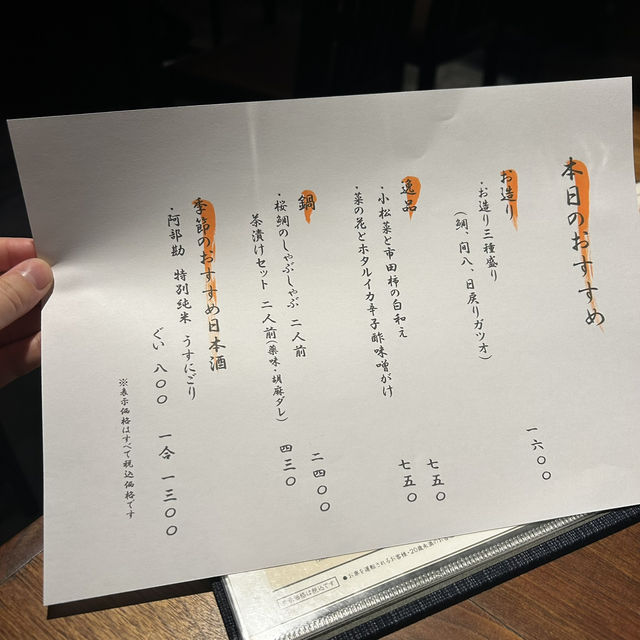 本日のおすすめ
お造り
・お造り三種盛り
(鯛、間八、日戻りガツオ)
一六〇〇
逸品
・小松菜と市田柿の白和え
七五〇
・菜の花とホタルイカ辛子酢味噌がけ
七五〇
鍋
・桜鯛のしゃぶしゃぶ 二人前
二四〇〇
茶漬けセット 二人前(薬味・胡麻ダレ)
四三〇
季節のおすすめ日本酒
・阿部勘 特別純米 うすにごり
ぐい 八〇〇 一合 一三〇〇
※表示価格はすべて税込価格です
●お車を運転されるお客様・20歳未満の
価格は税込です